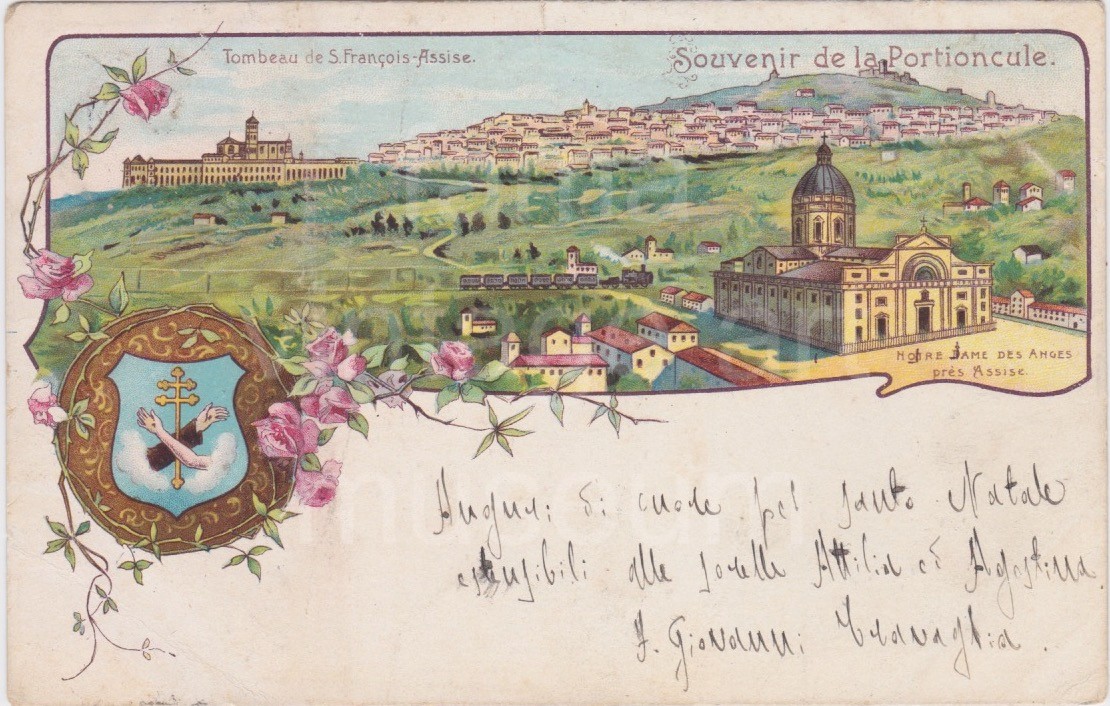 Tombeau de S. François-Assise.
Souvenir de la Portioncule.
NOTRE DAME DES ANGES
près Assise.
Auguri di cuore pel santo Natale
estensibili alle sorelle Attilia ed Agostina
F. Giovanni Travaglia.
museum